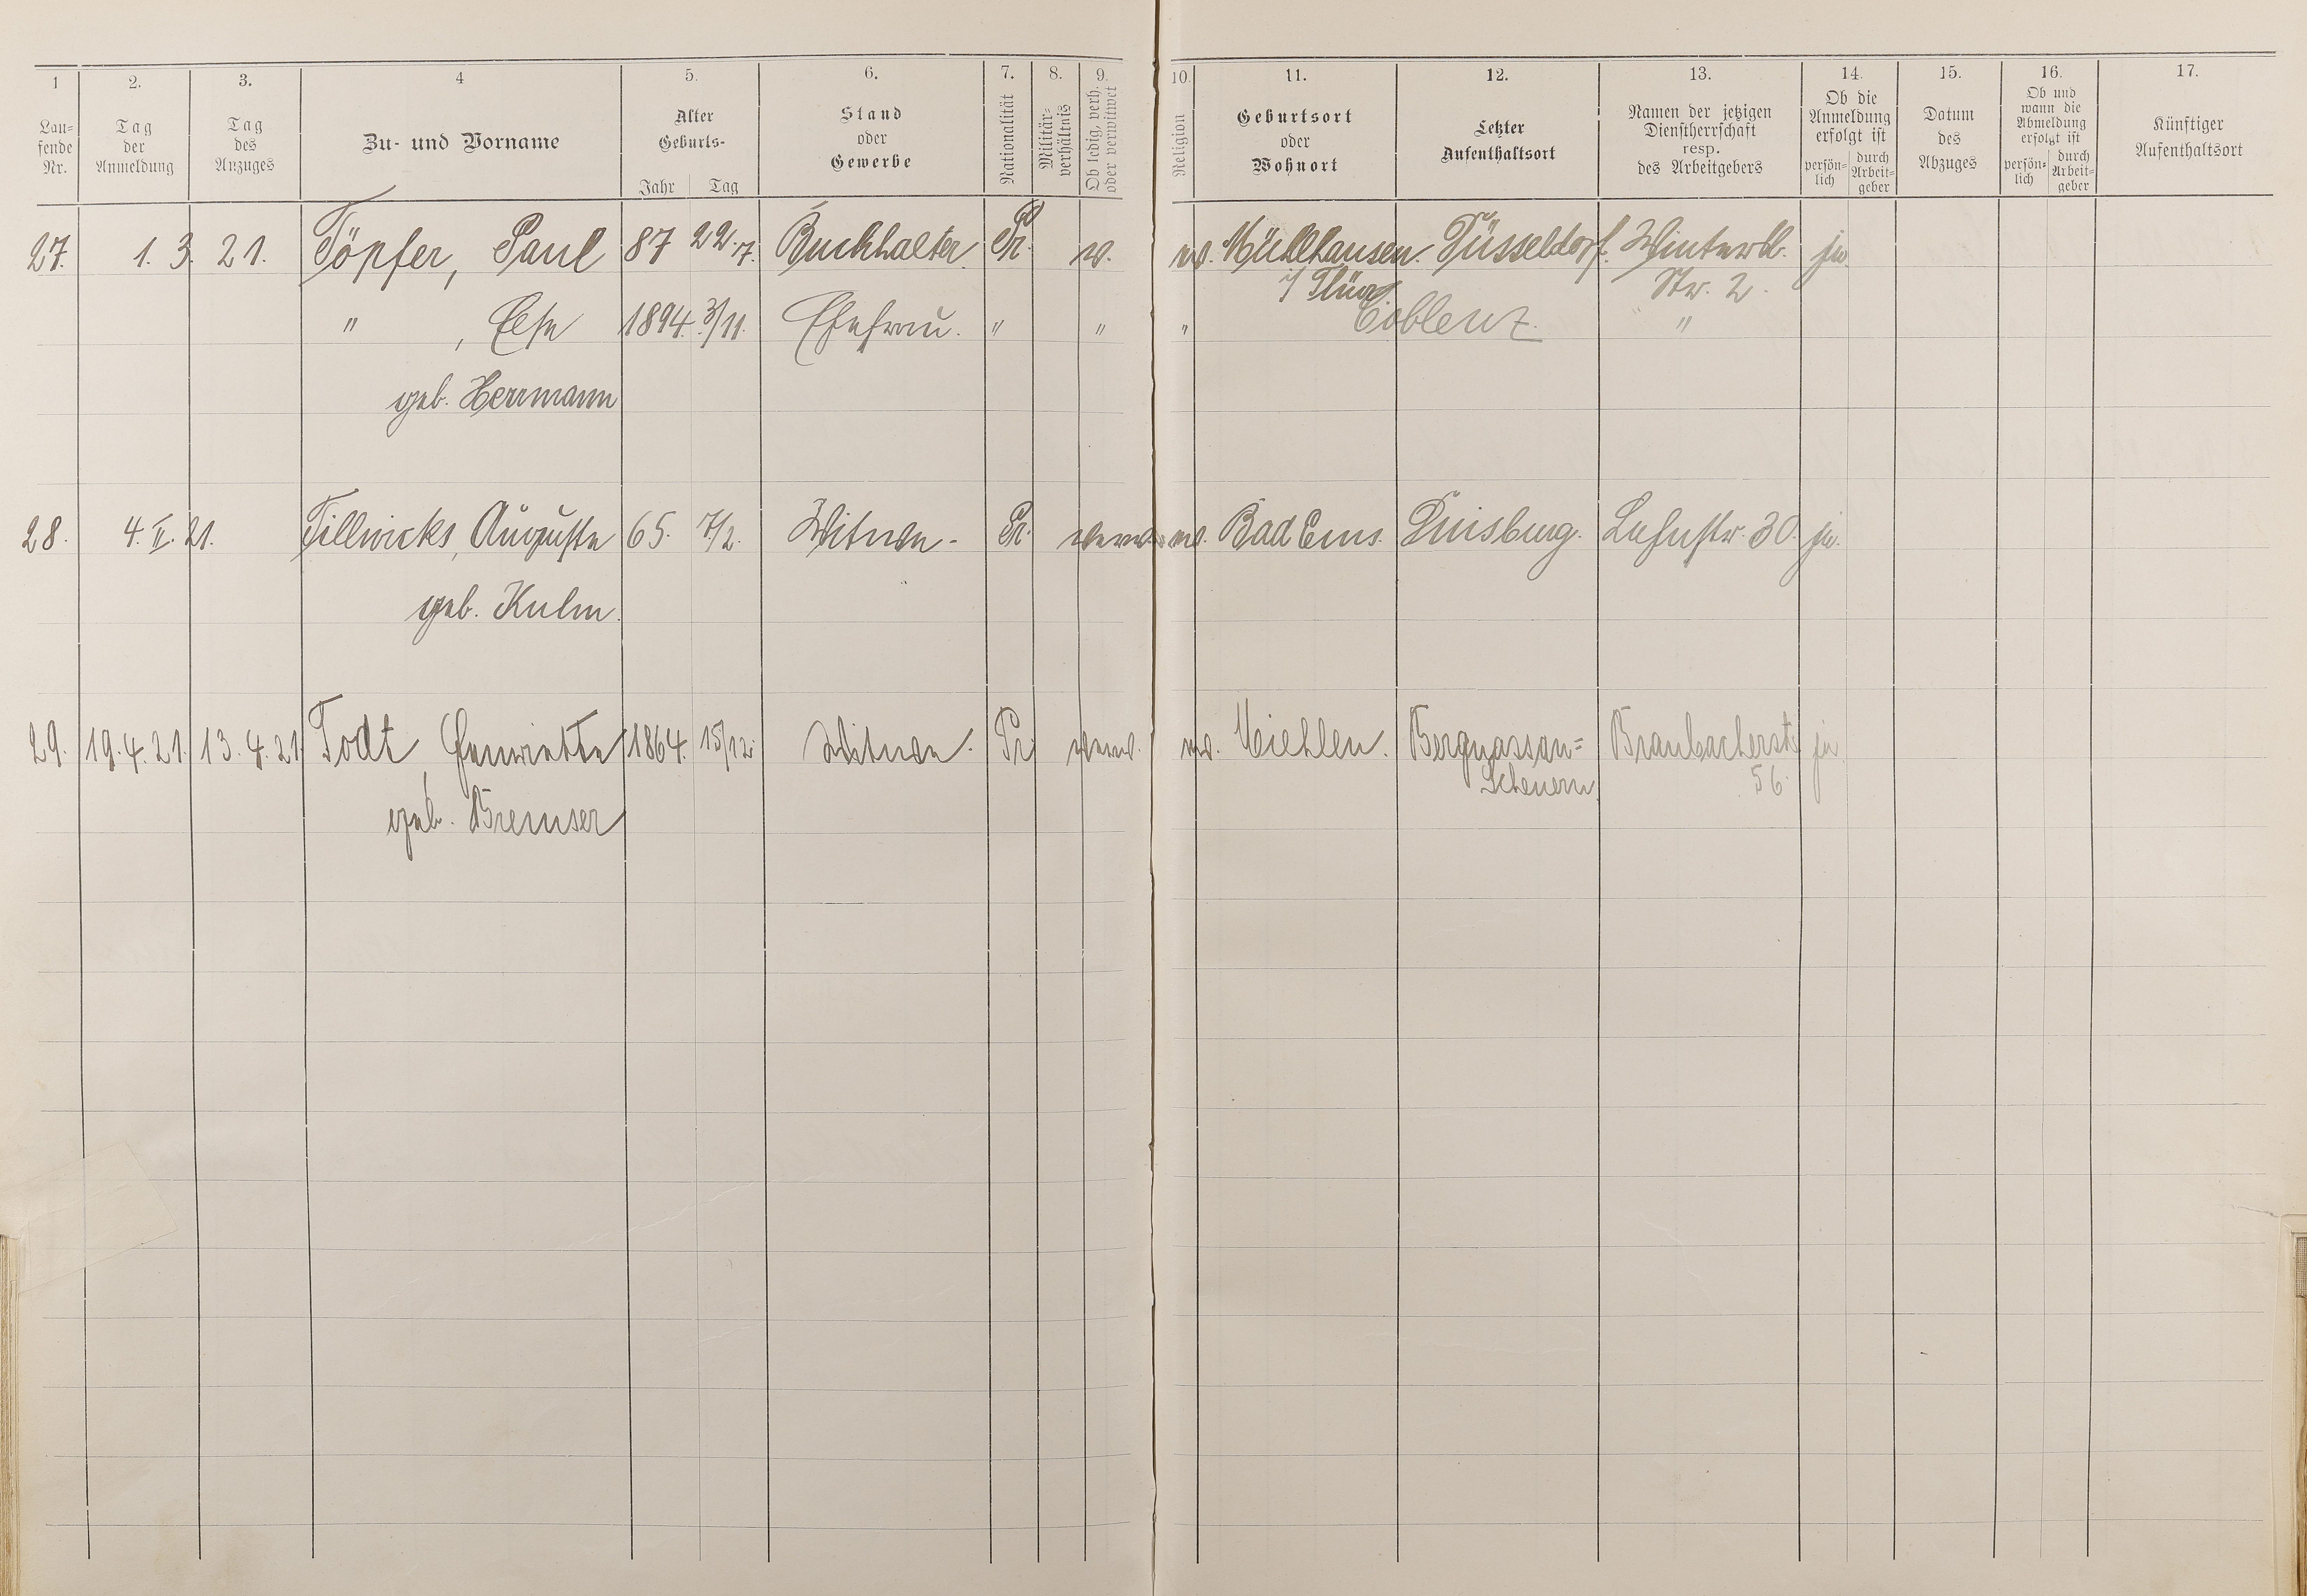 1 2. 3. 4 5. 6. 7. 8. 9. 10. 11. 12. 13. 14. 15. 16. 17.
Lau-
fende
Nr.
Tag
der
Anmeldung
Tag
des
Anzuges
Zu- und Vorname
Alter
Geburts-
Jahr Tag
Stand
oder
Gewerbe
Nationalität
Militär-
verhältnis
Ob ledig, verh.
oder verwitwet
Religion
Geburtsort
oder
Wohnort
Letzter
Aufenthaltsort
Namen der jetzigen
Dienstherrschaft
resp.
des Arbeitgebers
Ob die
Anmeldung
erfolgt ist
persön-
lich
durch
Arbeit-
geber
Datum
des
Abzuges
Ob und
wann die
Abmeldung
erfolgt ist
persön-
lich
durch
Arbeit-
geber
Künftiger
Aufenthaltsort
27. 1. 3. 21. Töpfer, Paul 87 22.7. Buchhalter Pr. Mühlhausen Düsseldorf. ja
i/Thür. Str. 2.
" , Else 1894. 3/11. Ehefrau. " " " Coblenz. "
geb. Herrmann
28. 4. II. 21. Tillwicks, Auguste 65. 7/2. Witwe. Pr. verw. ev. Bad Ems. Duisburg. Lahnstr. 30. ja.
geb. Kulm.
29. 19. 4. 21. 13. 4. 21. Todt, Henriette 1864. 15/12. Witwe. Pr. verw. ev. Miehlen. Bergnassau= Braubacherstr. ja
Scheuern. 56.
geb. Bremser